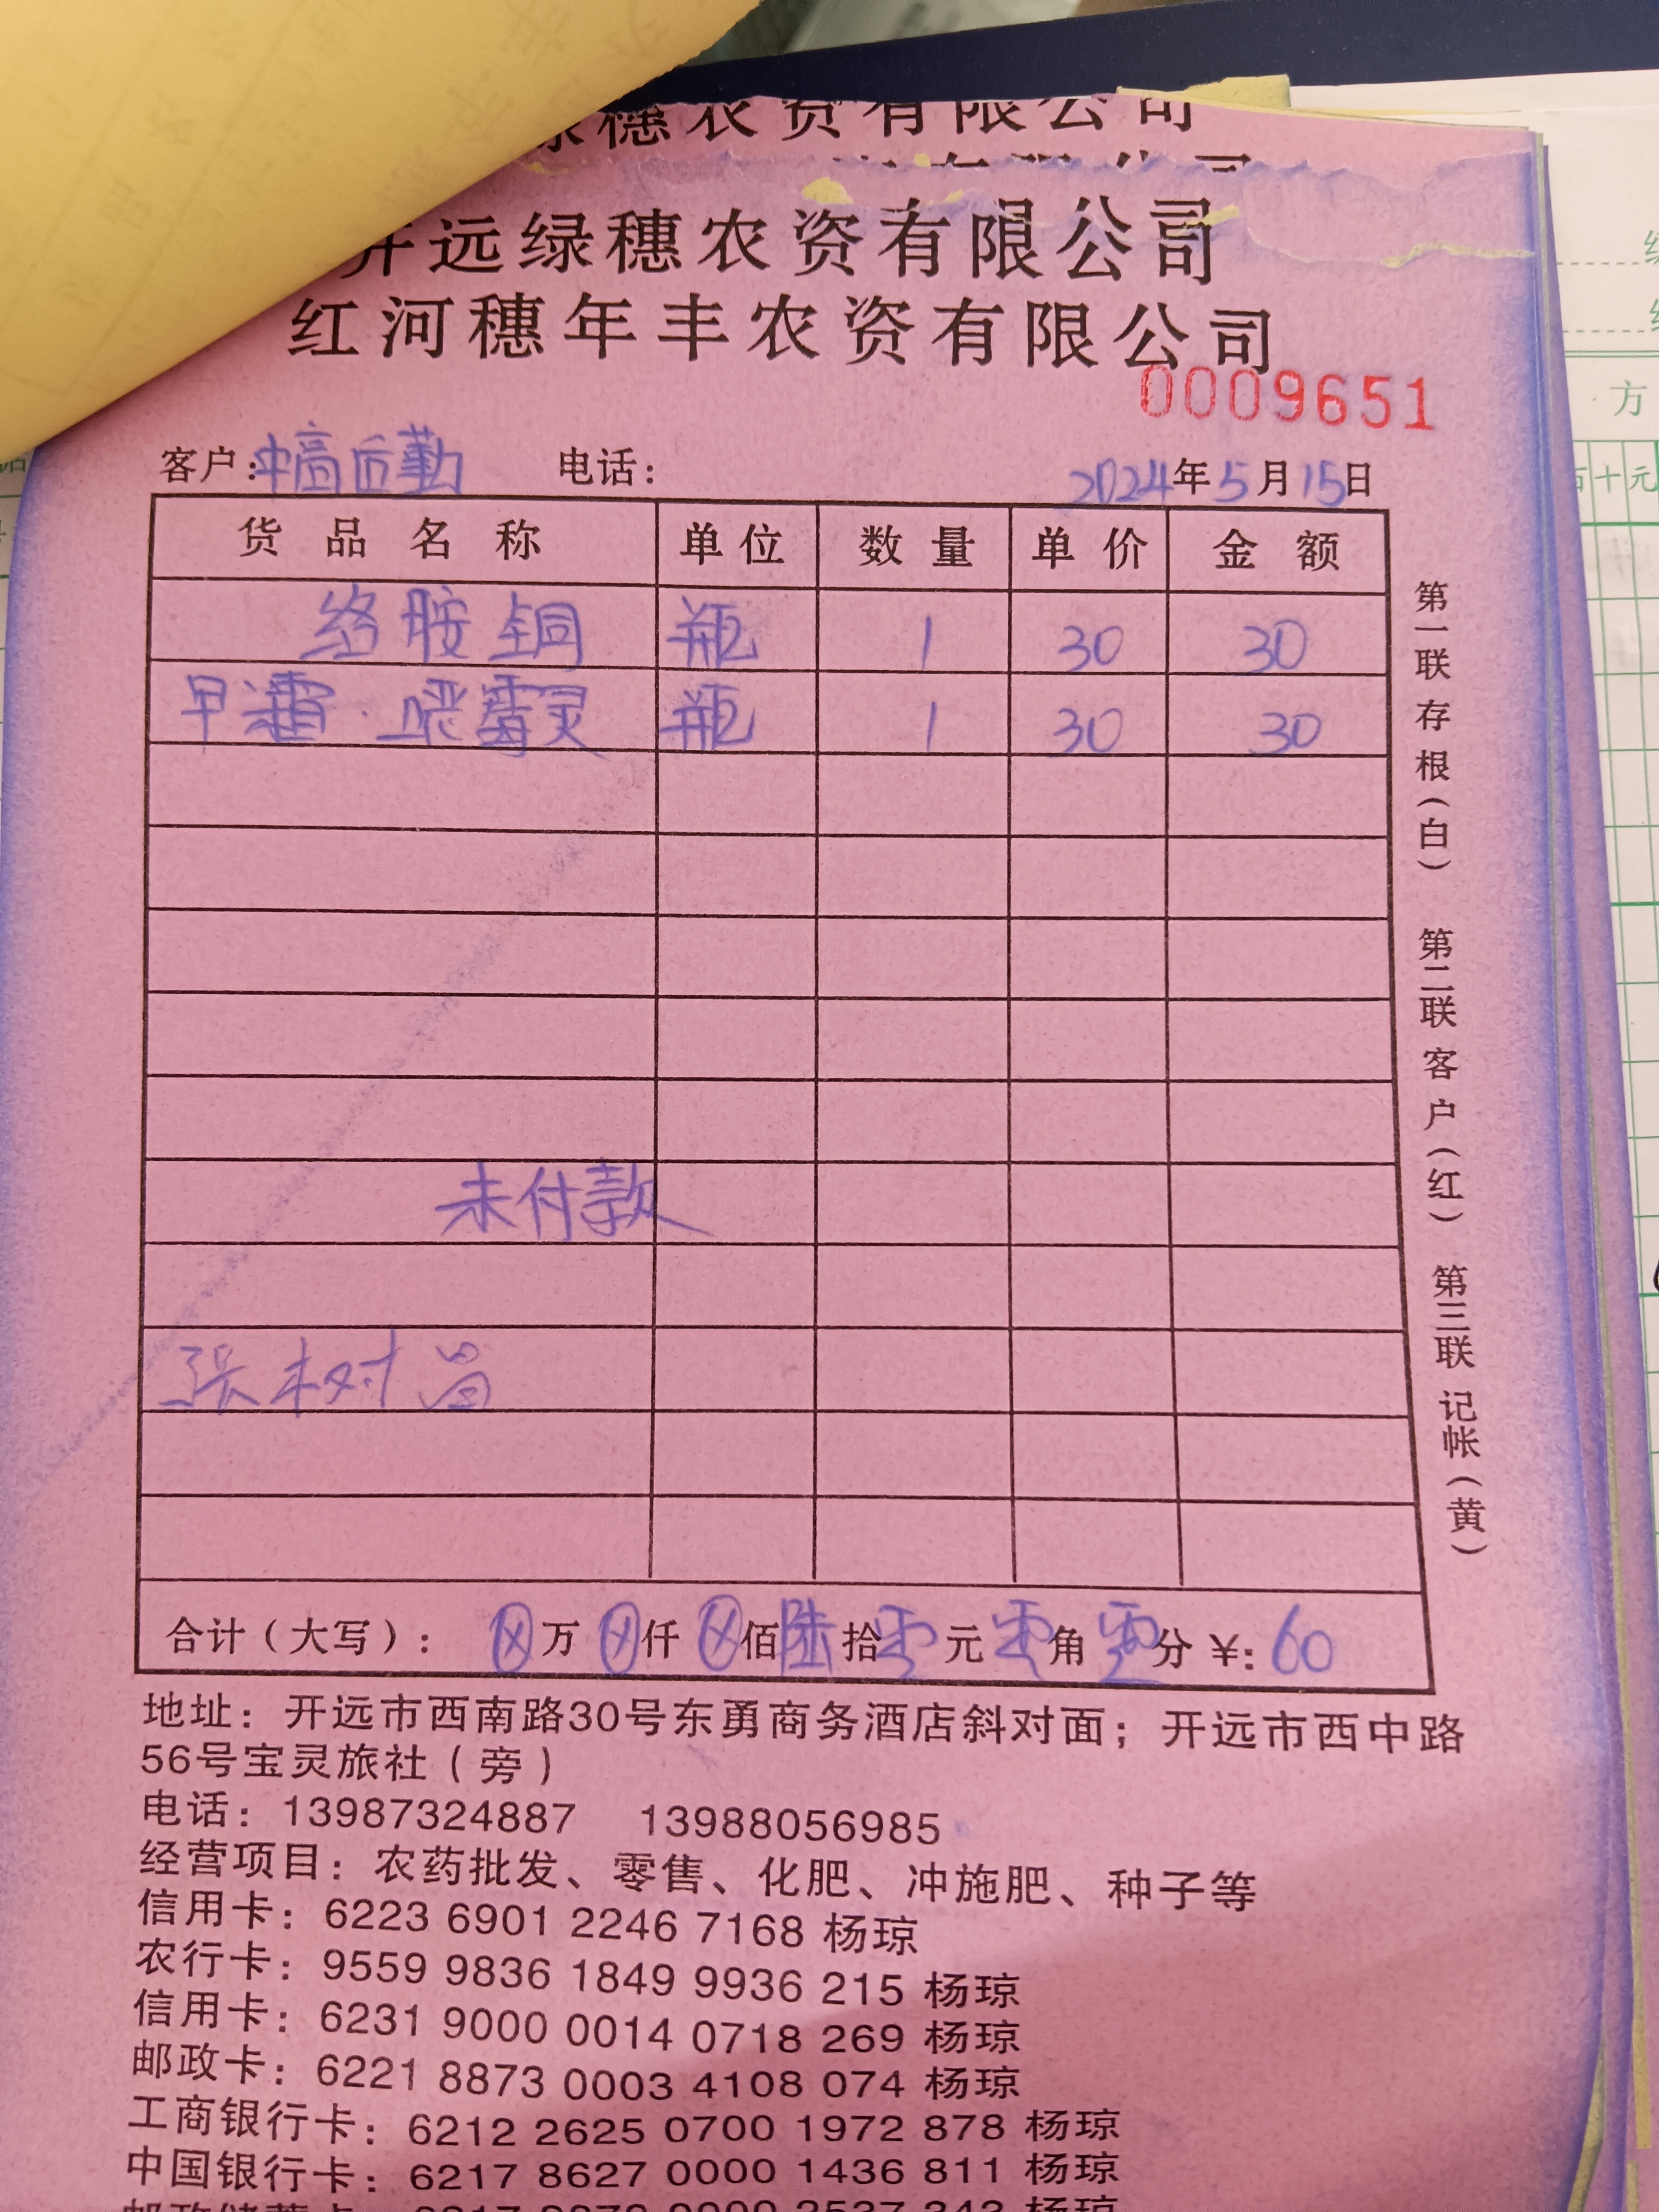 绿穗农资有限公司
开远绿穗农资有限公司
红河穗年丰农资有限公司
0009651
客户:中高后勤 电话: 2024年5月15日
货品名称 单位 数量 单价 金额
络胺铜 瓶 1 30 30
甲霜·噁霉灵 瓶 1 30 30
未付款
张树昌
合计(大写): ⊗万⊗仟⊗佰陆拾零元零角零分 ¥:60
第一联存根(白) 第二联客户(红) 第三联记帐(黄)
地址:开远市西南路30号东勇商务酒店斜对面;开远市西中路
56号宝灵旅社(旁)
电话:13987324887 13988056985
经营项目:农药批发、零售、化肥、冲施肥、种子等
信用卡:6223 6901 2246 7168 杨琼
农行卡:9559 9836 1849 9936 215 杨琼
信用卡:6231 9000 0014 0718 269 杨琼
邮政卡:6221 8873 0003 4108 074 杨琼
工商银行卡:6212 2625 0700 1972 878 杨琼
中国银行卡:6217 8627 0000 1436 811 杨琼
方
百十元